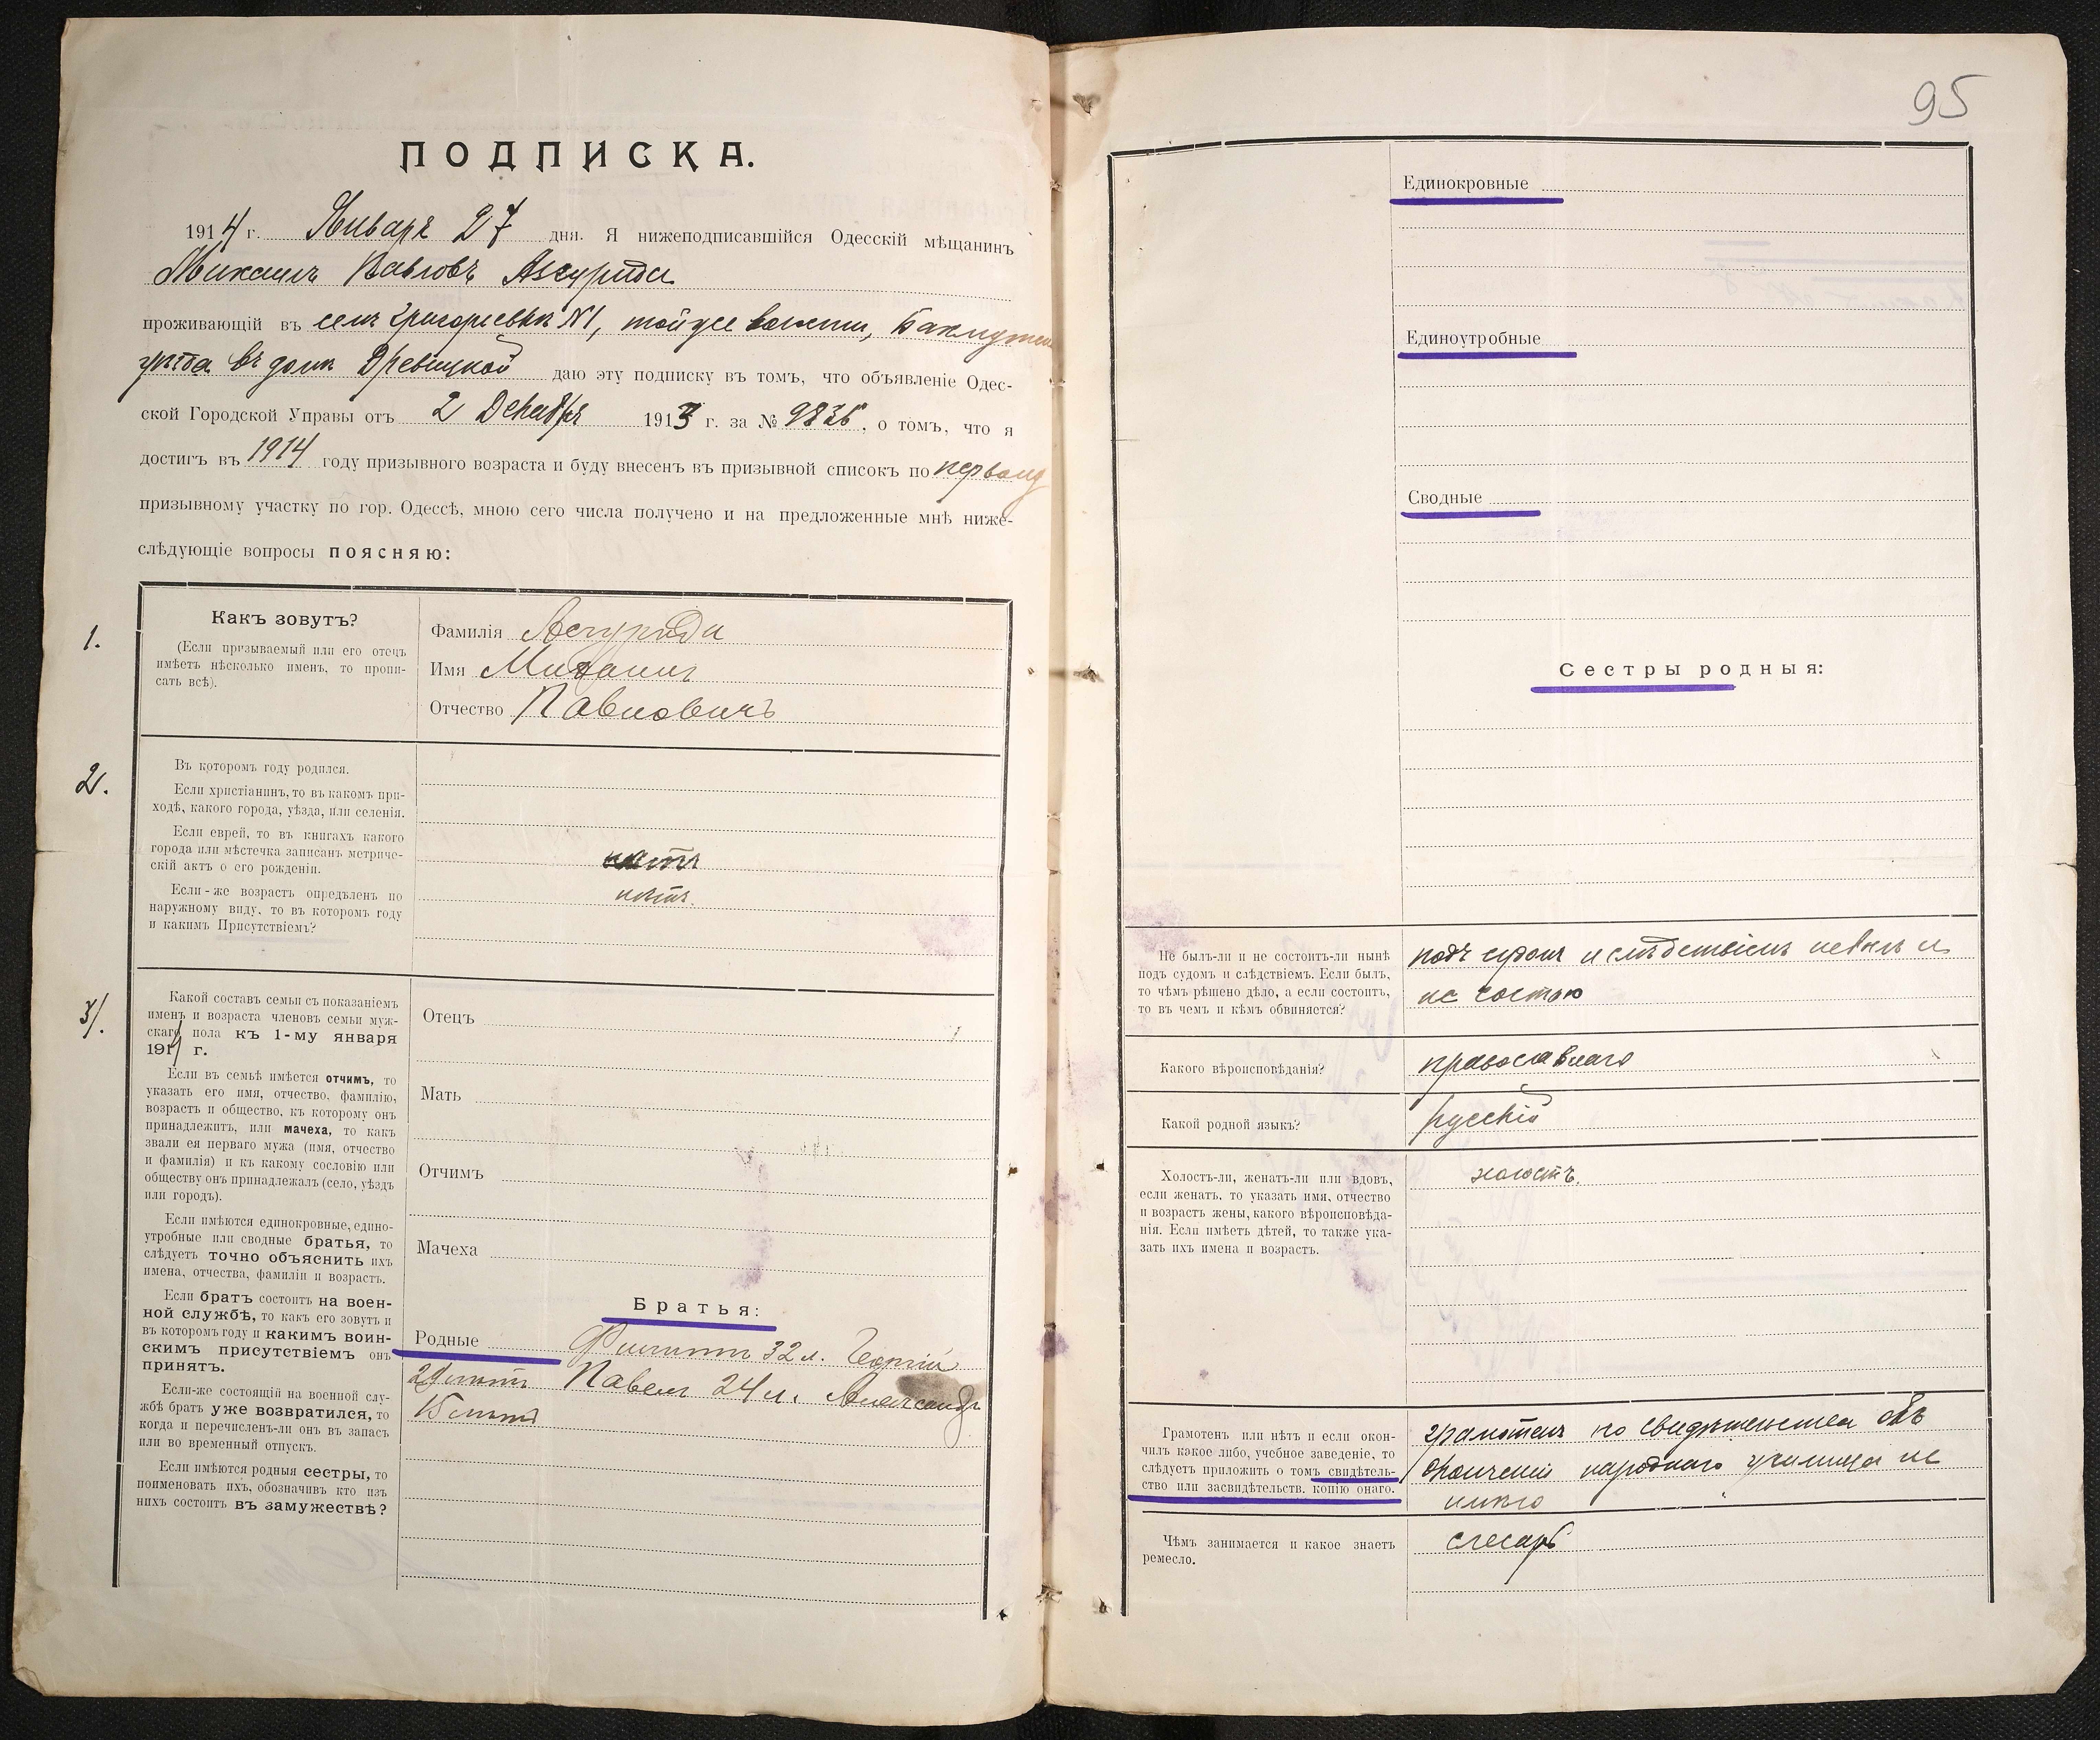 95
ПОДПИСКА.
1914 г. Января 27 дня. Я нижеподписавшійся Одесскій мѣщанинъ
Михаилъ Павловъ
проживающій въ селѣ Григорьевкѣ №1, тойже волости,
уѣзда въ домѣ даю эту подписку въ томъ, что объявленіе Одес-
ской Городской Управы отъ 2 Декабря 1913 г. за № , о томъ, что я
достигъ въ 1914 году призывного возраста и буду внесенъ въ призывной списокъ по первому
призывному участку по гор. Одессѣ, мною сего числа получено и на предложенные мнѣ ниже-
слѣдующіе вопросы поясняю:
1.
Какъ зовутъ?
(Если призываемый или его отецъ
имѣетъ нѣсколько именъ, то пропи-
сать всѣ).
Фамилія
Имя Михаилъ
Отчество Павловичъ
2.
Въ которомъ году родился.
Если христіанинъ, то въ какомъ при-
ходѣ, какого города, уѣзда, или селенія.
Если еврей, то въ книгахъ какого
города или мѣстечка записанъ метриче-
скій актъ о его рожденіи.
Если-же возрастъ опредѣленъ по
наружному виду, то въ которомъ году
и какимъ Присутствіемъ?
нѣтъ.
3.
Какой составъ семьи съ показаніемъ
именъ и возраста членовъ семьи муж-
скаго пола къ 1-му января
191 г.
Если въ семьѣ имѣется отчимъ, то
указать его имя, отчество, фамилію,
возрастъ и общество, къ которому онъ
принадлежитъ, или мачеха, то какъ
звали ея перваго мужа (имя, отчество
и фамилія) и къ какому сословію или
обществу онъ принадлежалъ (село, уѣздъ
или городъ).
Если имѣются единокровные, едино-
утробные или сводные братья, то
слѣдуетъ точно объяснить ихъ
имена, отчества, фамиліи и возрастъ.
Если братъ состоитъ на воен-
ной службѣ, то какъ его зовутъ и
въ которомъ году и какимъ воин-
скимъ присутствіемъ онъ
принятъ.
Если-же состоящій на военной слу-
жбѣ братъ уже возвратился, то
когда и перечисленъ-ли онъ въ запасъ
или во временный отпускъ.
Если имѣются родныя сестры, то
поименовать ихъ, обозначивъ кто изъ
нихъ состоитъ въ замужествѣ?
Отецъ
Мать
Отчимъ
Мачеха
Братья:
Родные Филиппъ 32 л. Георгій
лѣтъ Павелъ 24 л. Александръ
15 лѣтъ
Единокровные
Единоутробные
Сводные
Сестры родныя:
Не былъ-ли и не состоитъ-ли нынѣ
подъ судомъ и слѣдствіемъ. Если былъ,
то чѣмъ рѣшено дѣло, а если состоитъ,
то въ чемъ и кѣмъ обвиняется?
подъ судомъ и слѣдствіемъ небылъ и
не состою
Какого вѣроисповѣданія?
православнаго
Какой родной языкъ?
русскій
Холостъ-ли, женатъ-ли или вдовъ,
если женатъ, то указать имя, отчество
и возрастъ жены, какого вѣроисповѣда-
нія. Если имѣетъ дѣтей, то также ука-
зать ихъ имена и возрастъ.
холостъ.
Грамотенъ или нѣтъ и если окон-
чилъ какое либо, учебное заведеніе, то
слѣдуетъ приложить о томъ свидѣтель-
ство или засвидѣтельств. копію онаго.
грамотенъ но свидѣтельства объ
окончаніи народнаго училища не
имѣю
Чѣмъ занимается и какое знаетъ
ремесло.
слесарь